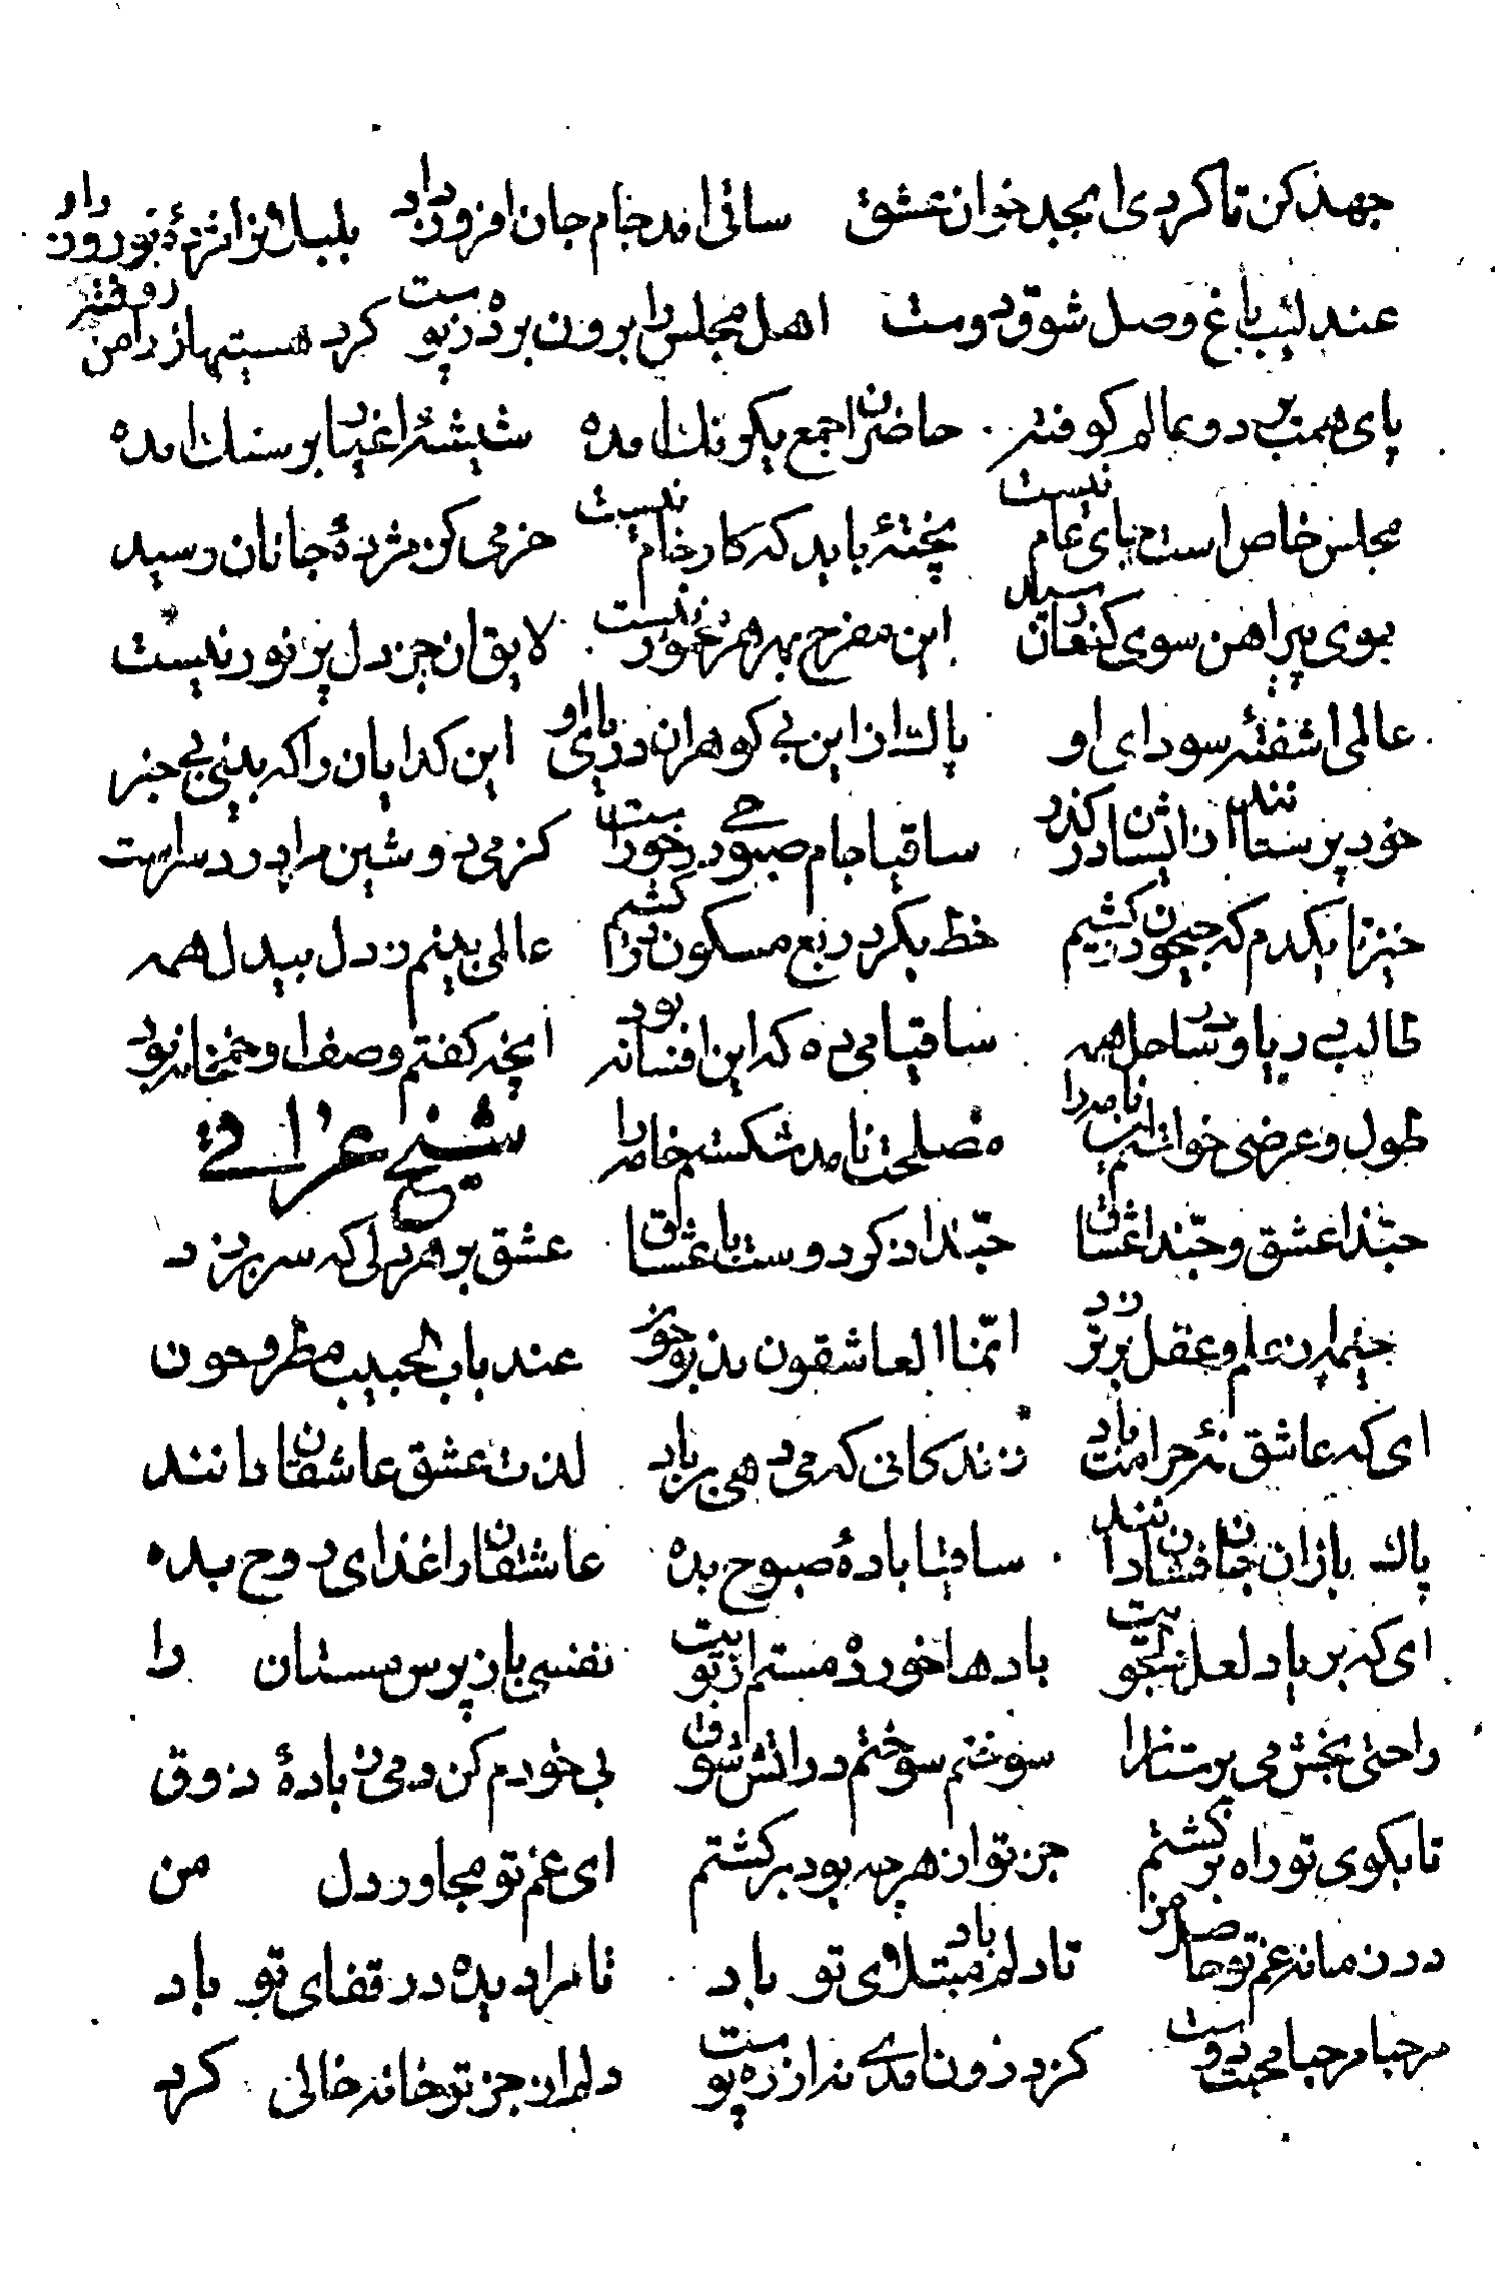 جهد کن تا کردی ابجد خوان عشق ساقی امد جام جان افروز داد بلبلان را مژدهٔ نوروز داد
عندلیب باغ وصل شوق دوست اهل مجلس را برون برده ز پوست کرد هستیها ز دامن روفته
پای همت بر دو عالم کوفته حاضران جمع یکرنک امده شیشهٔ اغیار بر سنک امده
مجلس خاص است جای عام نیست پختهٔ باید که کار خام نیست خرمی کن مژدهٔ جانان رسید
بوی پیراهن سوی کنعان رسید این مفرح بهر هر مخمور نیست لایق ان جز دل پر نور نیست
عالمی اشفتهٔ سودای او پاک ازین بی کوهران دریای او این کدایان را که بینی بی خبر
خود پرستانند ازایشان در کذر ساقیا جام صبوحی در خورست کز می دوشین مرا درد سرست
خیز تا یکدم که جیحون در کشیم خط بکرد ربع مسکون بر کشیم عالمی بینم ز دل بیدل همه
طالب دریا و در ساحل همه ساقیا می ده که این افسانه بود انچه کفتم وصف او خمخانه بود
طول و عرضی خواستم این نامه را مصلحت نامد شکستم خامه را شیخ عراقی
حبّذا عشق و حبّذا عشاق حبّذا ذکر دوست با عشاق عشق بر هر دلی که سر بر زد
خیمه از علم و عقل برتر زد انّما العاشقون مذبوحون عند باب الحبیب مطروحون
ای که عاشق نهٔ حرامت باد زندکانی که می دهی بر باد لذت عشق عاشقان دانند
پاک بازان جان فشان دانند ساقیا بادهٔ صبوح بده عاشقان را غذای روح بده
ای که بر یاد لعل میکونت بادها خورده مستم از بویت نفسی باز پرس مستان را
راحتی بخش می پرستانرا سوختم سوختم در اتش شوق بی خودم کن دمی ز بادهٔ ذوق
تا بکوی تو راه بر کشتم جز تو از هر چه بود بر کشتم ای غم تو مجاور دل من
در زمانه غم تو حاصل من تا دلم باد مبتلای تو باد تا مرا دیده در قفای تو باد
مرحبا مرحبا محبت دوست کز درون امدی نه از ره پوست دلم از جز تو خانه خالی کرد